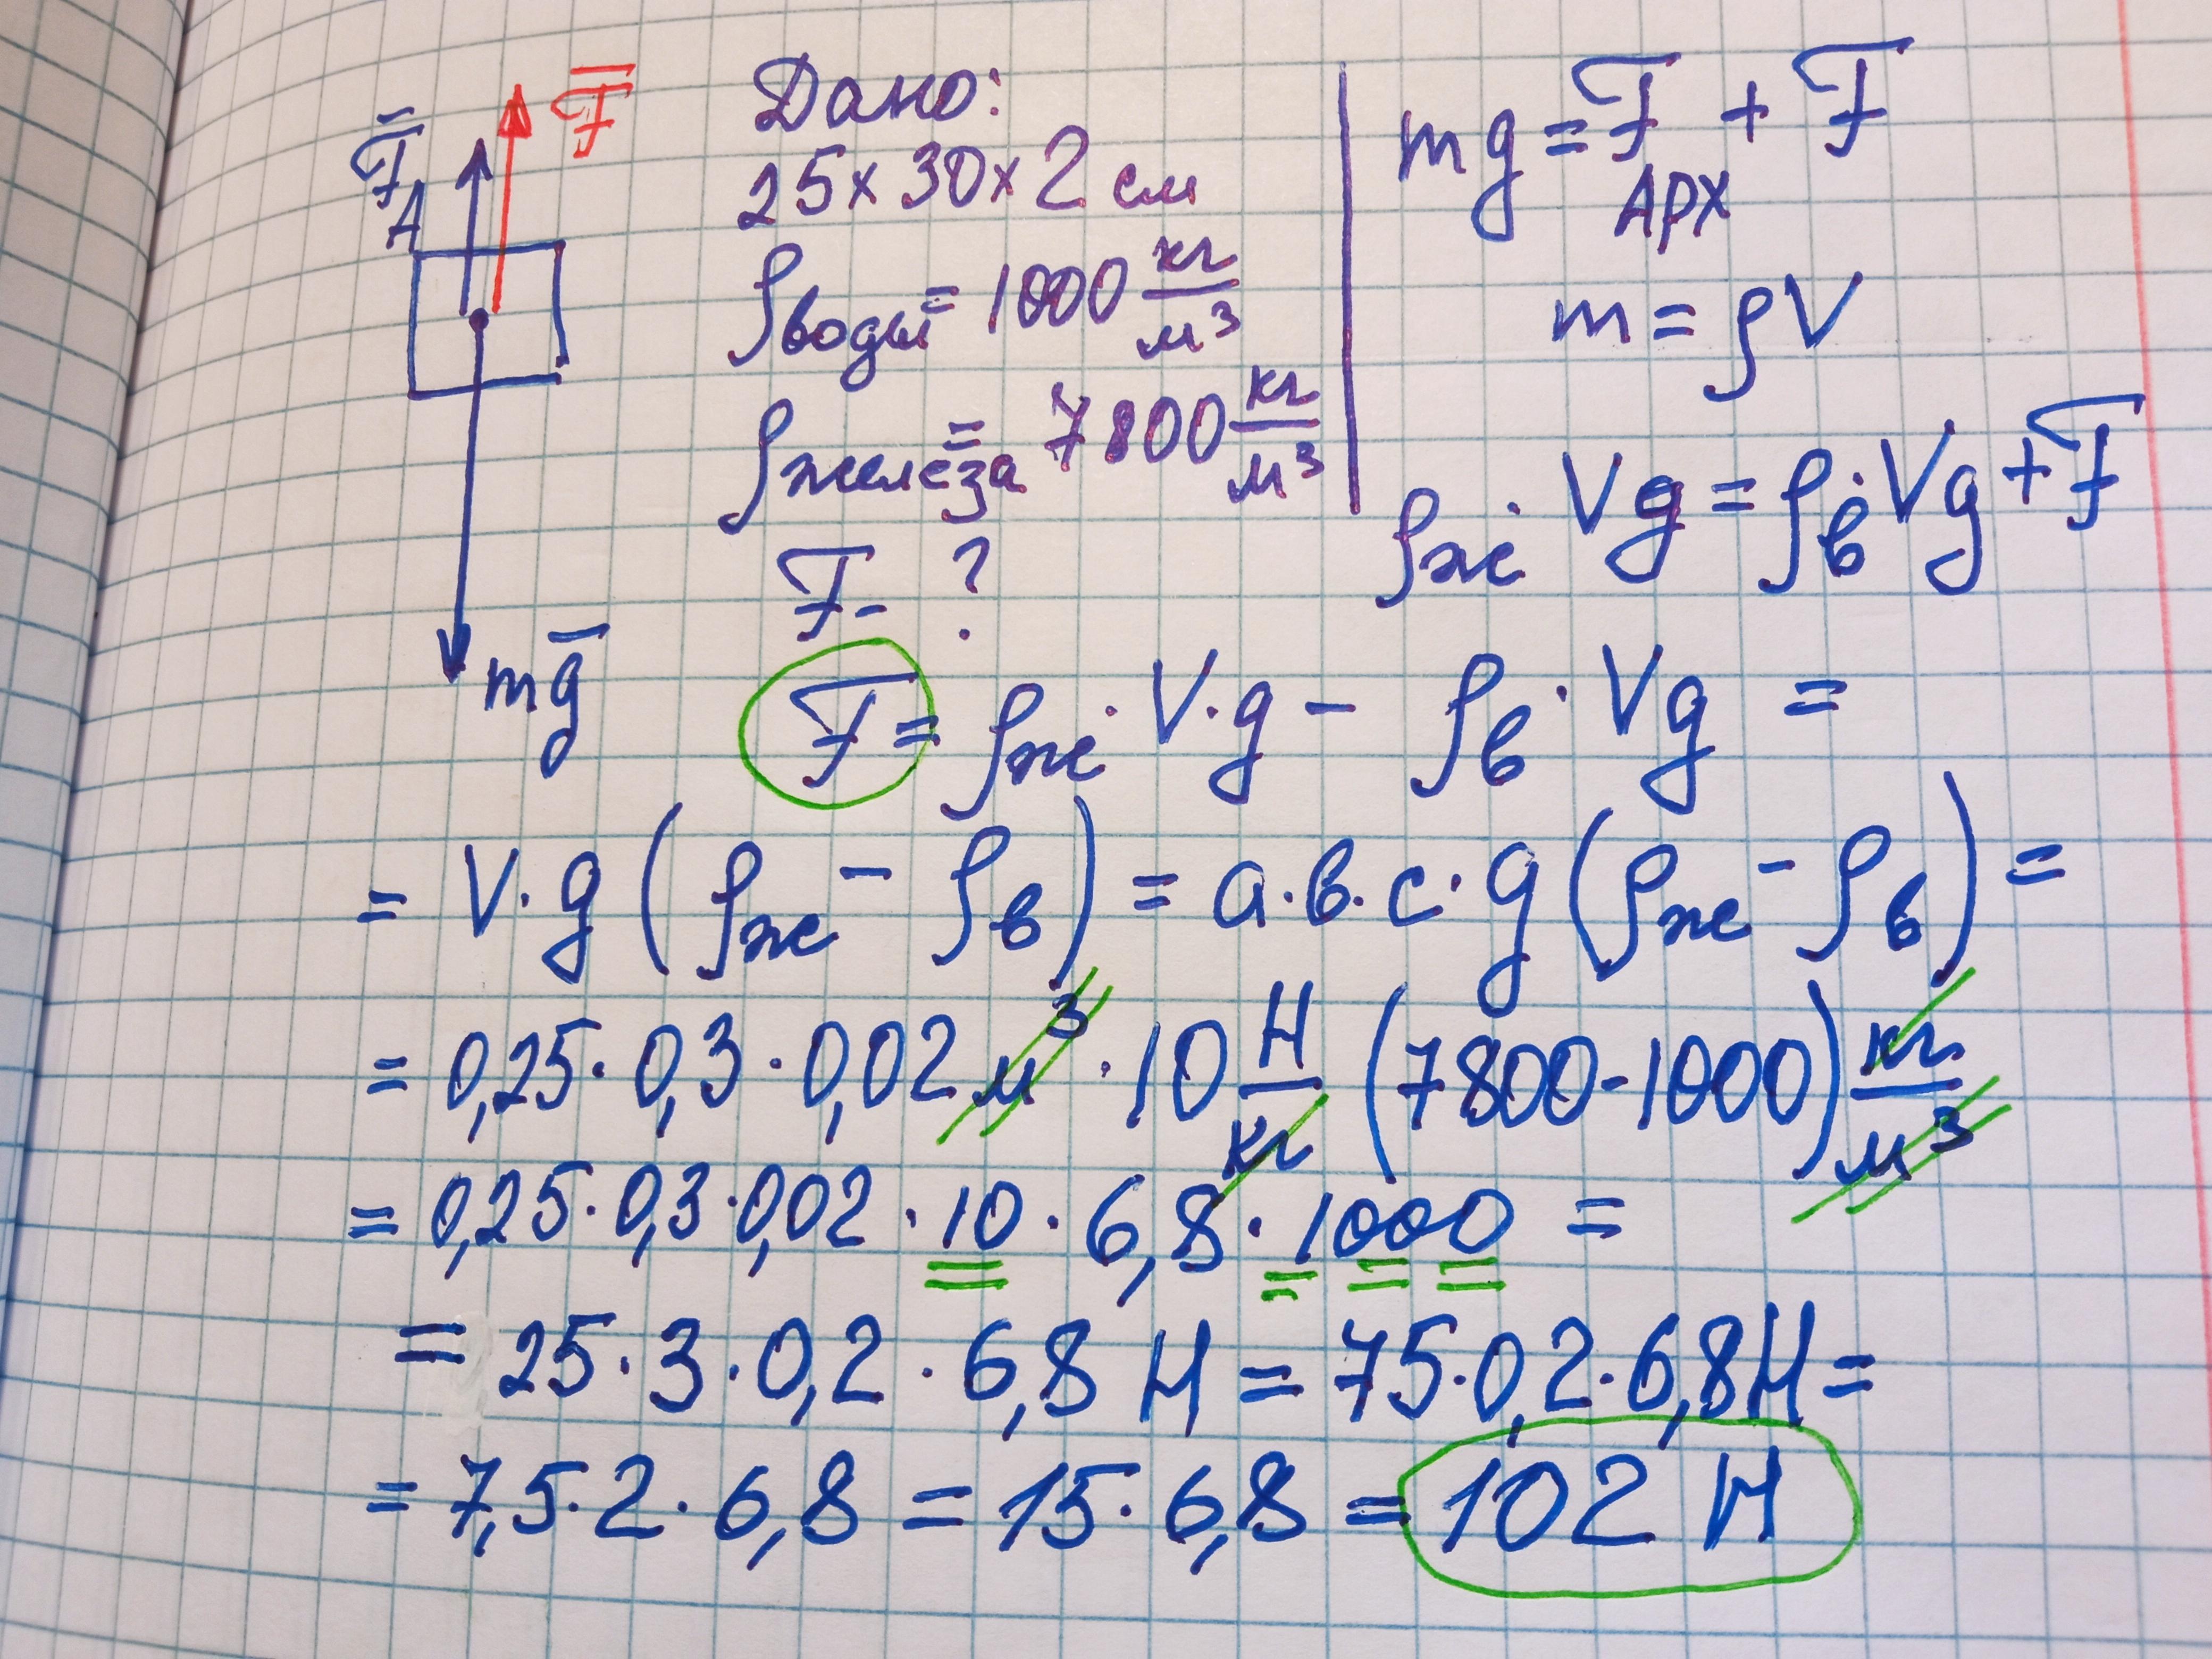 F̅_A
F̅
mg̅
Дано:
25 x 30 x 2 см
ρ_воды = 1000 кг/м³
ρ_железа = 7800 кг/м³
F - ?
mg = F_АРХ + F
m = ρV
ρ_ж · Vg = ρ_в · Vg + F
F = ρ_ж · V · g - ρ_в · Vg =
= V · g (ρ_ж - ρ_в) = a · в · c · g (ρ_ж - ρ_в) =
= 0,25 · 0,3 · 0,02 м³ · 10 Н/кг (7800 - 1000) кг/м³
= 0,25 · 0,3 · 0,02 · 10 · 6,8 · 1000 =
= 25 · 3 · 0,2 · 6,8 Н = 75 · 0,2 · 6,8 Н =
= 7,5 · 2 · 6,8 = 15 · 6,8 = 102 Н